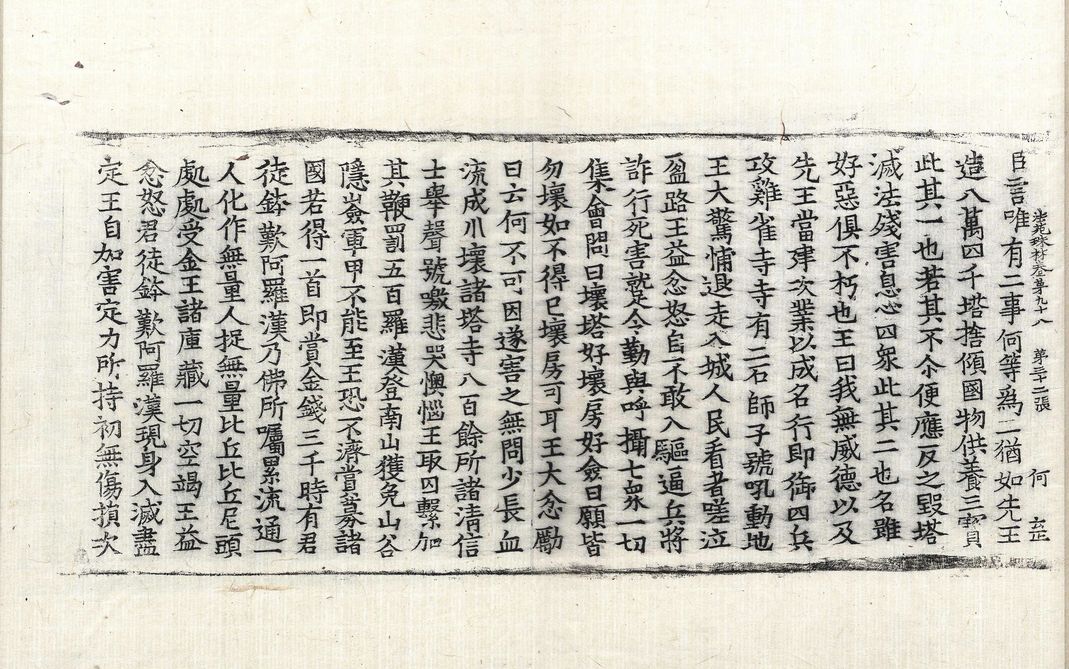 臣言唯有二事何等爲二猶如先王
法苑珠林卷第九十八 第三十二張 何
造八萬四千塔捨傾國物供養三寶
此其一也若其不尒便應反之毀塔
滅法殘害息心四衆此其二也名雖
好惡俱不朽也王曰我無威德以及
先王當建次業以成名行即御四兵
攻雞雀寺寺有二石師子號吼動地
王大驚怖退走入城人民看者嗟泣
盈路王益忿怒自不敢入驅逼兵將
詐行死害就令勤與呼攝七衆一切
集會問曰壞塔好壞房好僉曰願皆
勿壞如不得已壞房可耳王大忿勵
曰云何不可因遂害之無問少長血
流成川壞諸塔寺八百餘所諸清信
士舉聲號噭悲哭懊惱王取囚繫加
其鞭罰五百羅漢登南山獲免山谷
隱嶮軍甲不能至王恐不濟賞募諸
國若得一首即賞金錢三千時有君
徒鉢歎阿羅漢乃佛所囑累流通一
人化作無量人捉無量比丘比丘尼頭
處處受金王諸庫藏一切空竭王益
忿怒君徒鉢歎阿羅漢現身入滅盡
定王自加害定力所持初無傷損次